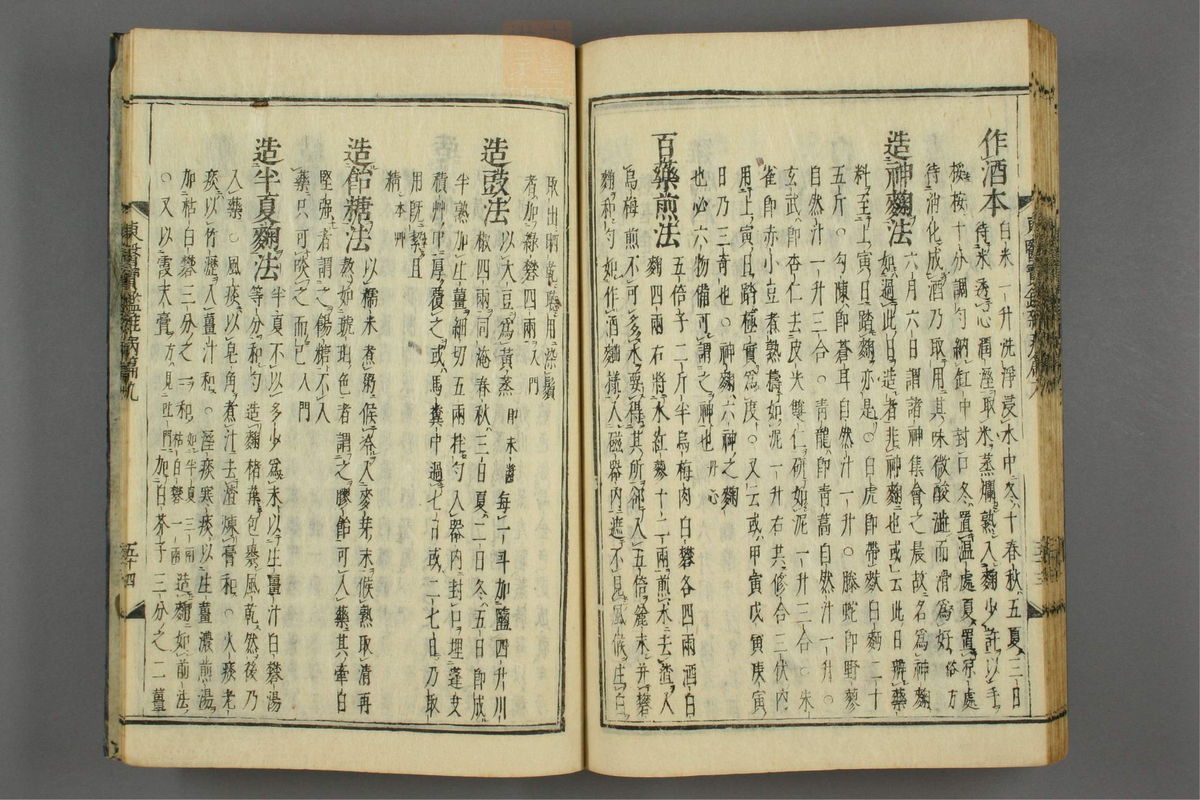 作酒本 白米一升洗淨浸水中冬十春秋五夏三日
待米透心潤溼取米蒸爛熟入麴少許以手
按挼十分調勻納缸中封口冬置溫處夏置凉處
待消化成酒乃取用其味微酸澁而滑為好俗方
造神麴法 六月六日謂諸神集會之辰故名為神麴
如過此日造者非神麴也或云此日辦藥
料至上寅日踏麴亦是○白虎即帶麩白麵二十
五斤○勾陳即蒼耳自然汁一升○滕蛇即野蓼
自然汁一升三合○青龍即青蒿自然汁一升○
玄武即杏仁去皮尖雙仁研如泥一升三合○朱
雀即赤小豆煮熟擣如泥一升右共修合三伏內
用上寅日踏極實為度○又云或甲寅戊寅庚寅
日乃三奇也○神麴六神之麴
也必六物備可謂之神也丹心
百藥煎法 五倍子二斤半烏梅肉白礬各四兩酒
麴四兩右將水紅蓼十二兩煎水去渣入
烏梅煎不可多水要得其所却入五倍麄末幷礬
麴和勻如作酒麴樣入磁器內遮不見風候生白
取出晒乾聽用染鬚
者加綠礬四兩入門
造豉法 以大豆為黃蒸每一斗加鹽四升川
椒四兩同淹春秋三日夏二日冬五日即成
半熟加生薑細切五兩拌勻入器內封口埋蓬艾
積艸中厚覆之或馬糞中過七日或二七日乃取
用旣潔且
精本艸
造飴糖法 以糯米煮粥候冷入麥芽末候熟取淸再
熬如琥珀色者謂之膠飴可入藥其牽白
堅强者謂之餳糖不入
藥只可啖之而已入門
造半夏麴法 半夏不以多少為末以生薑汁白礬湯
等分和勻造麴楮葉包褁風乾然後乃
入藥○風痰以皂角煮汁去渣煉膏和○火痰老
痰以竹瀝入薑汁和○溼痰寒痰以生薑濃煎湯
加枯白礬三分之一和如半夏三兩枯白礬一兩造麴如前法
○又以霞天膏方見吐門加白芥子三分之二薑
東醫寶鑑雜病篇九
五十四